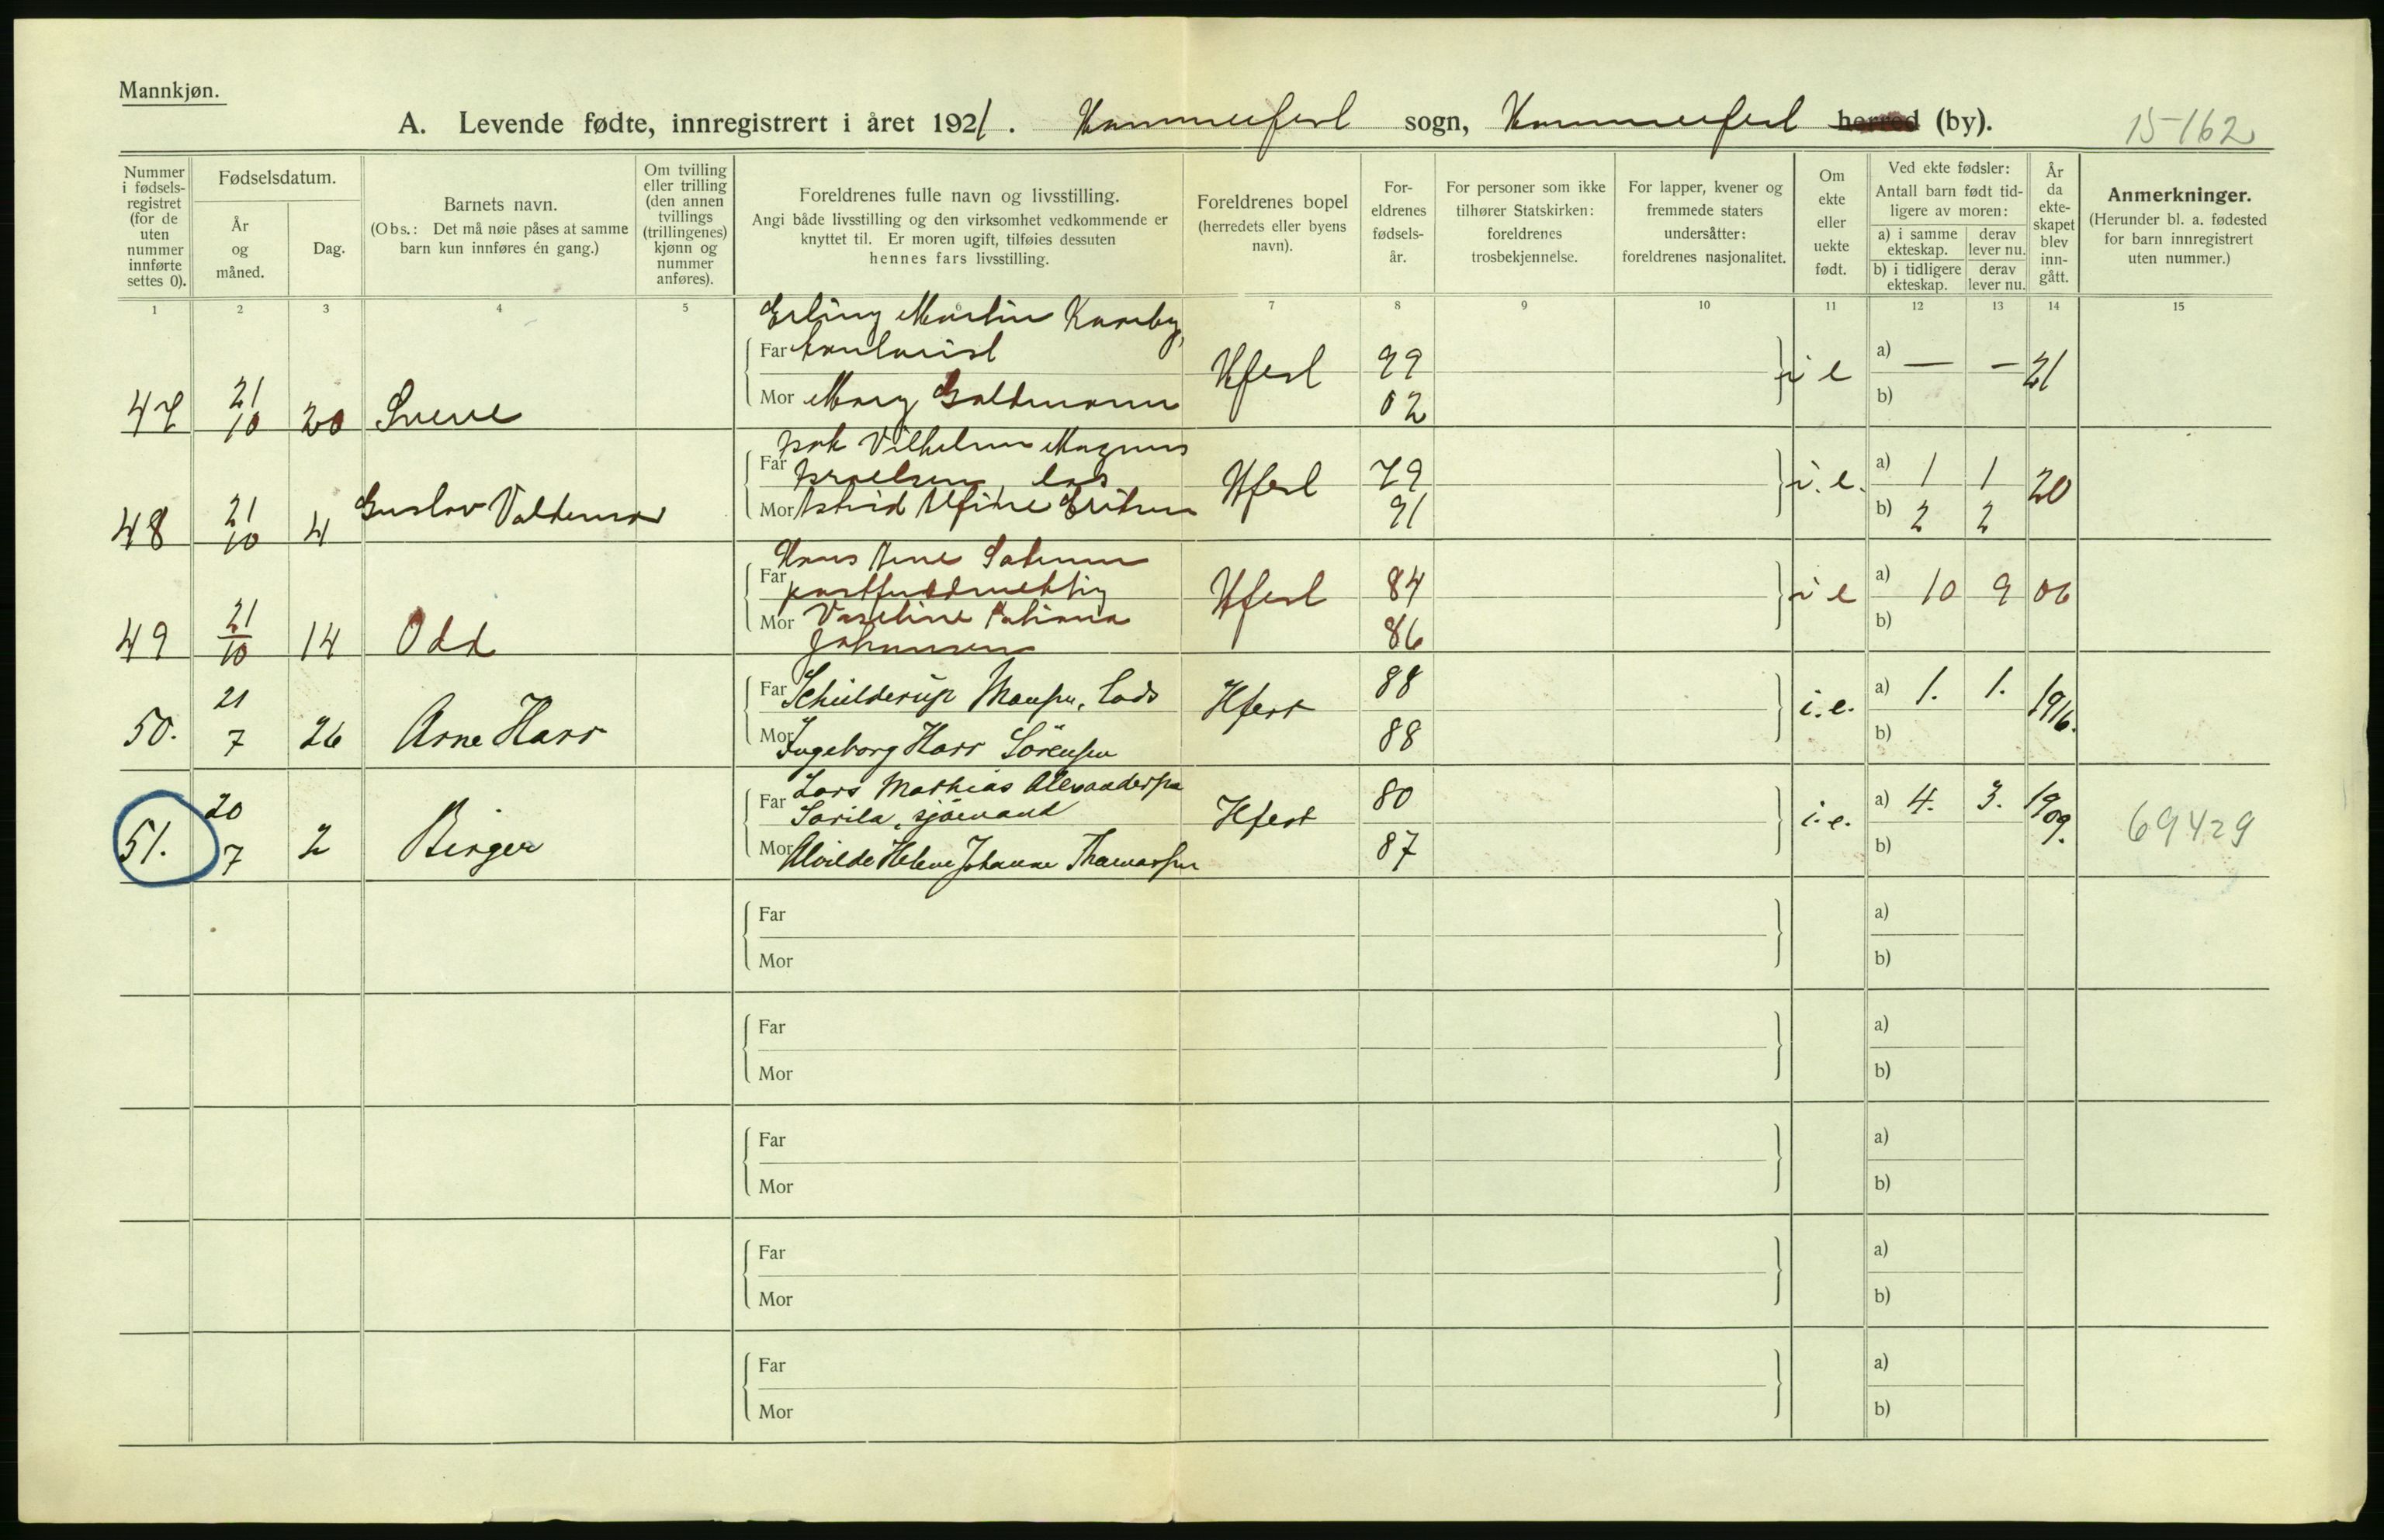 Mannkjøn.
A. Levende fødte, innregistrert i året 1921. Hammerfest sogn, Hammerfest herred (by). 15-162
Nummer i fødsels-registret (for de uten nummer innførte settes 0).
Fødselsdatum.
År og måned.
Dag.
Barnets navn.
(Obs.: Det må nøie påses at samme barn kun innføres én gang.)
Om tvilling eller trilling (den annen tvillings (trillingenes) kjønn og nummer anføres).
Foreldrenes fulle navn og livsstilling.
Angi både livsstilling og den virksomhet vedkommende er knyttet til. Er moren ugift, tilføies dessuten hennes fars livsstilling.
Foreldrenes bopel (herredets eller byens navn).
For-eldrenes fødsels-år.
For personer som ikke tilhører Statskirken: foreldrenes trosbekjennelse.
For lapper, kvener og fremmede staters undersåtter: foreldrenes nasjonalitet.
Om ekte eller uekte født.
Ved ekte fødsler:
Antall barn født tid-ligere av moren:
a) i samme ekteskap. derav lever nu.
b) i tidligere ekteskap. derav lever nu.
År da ekte-skapet blev inn-gått.
Anmerkninger.
(Herunder bl. a. fødested for barn innregistrert uten nummer.)
1 2 3 4 5 6 7 8 9 10 11 12 13 14 15
Erling Martin
47 21/10 20 Sverre Far Hfest 99 i e a) — — 21
Mor Mary Goldmann 02 b)
Vilhelm Magnus
48 21/10 4 Gustav Valdemar Far Israelsen, los Hfest 79 i.e. a) 1 1 20
Mor Astrid 91 b) 2 2
Hans
49 21/10 14 Odd Far Hfest 84 i e a) 10 9 06
Mor 86 b)
Johansen
50. 21 7 26 Arne Harr Far Schielderup Hfest 88 i.e. a) 1. 1. 1916.
Mor Ingeborg Harr Sörensen 88 b)
51. 20 7 2 Birger Far Lars Mathias Alexandersen Hfest 80 i.e. a) 4. 3. 1909. 69429
Sarila, sjömand
Mor Alvilde Helene Johanne Thomassen 87 b)
Far a)
Mor b)
Far a)
Mor b)
Far a)
Mor b)
Far a)
Mor b)
Far a)
Mor b)